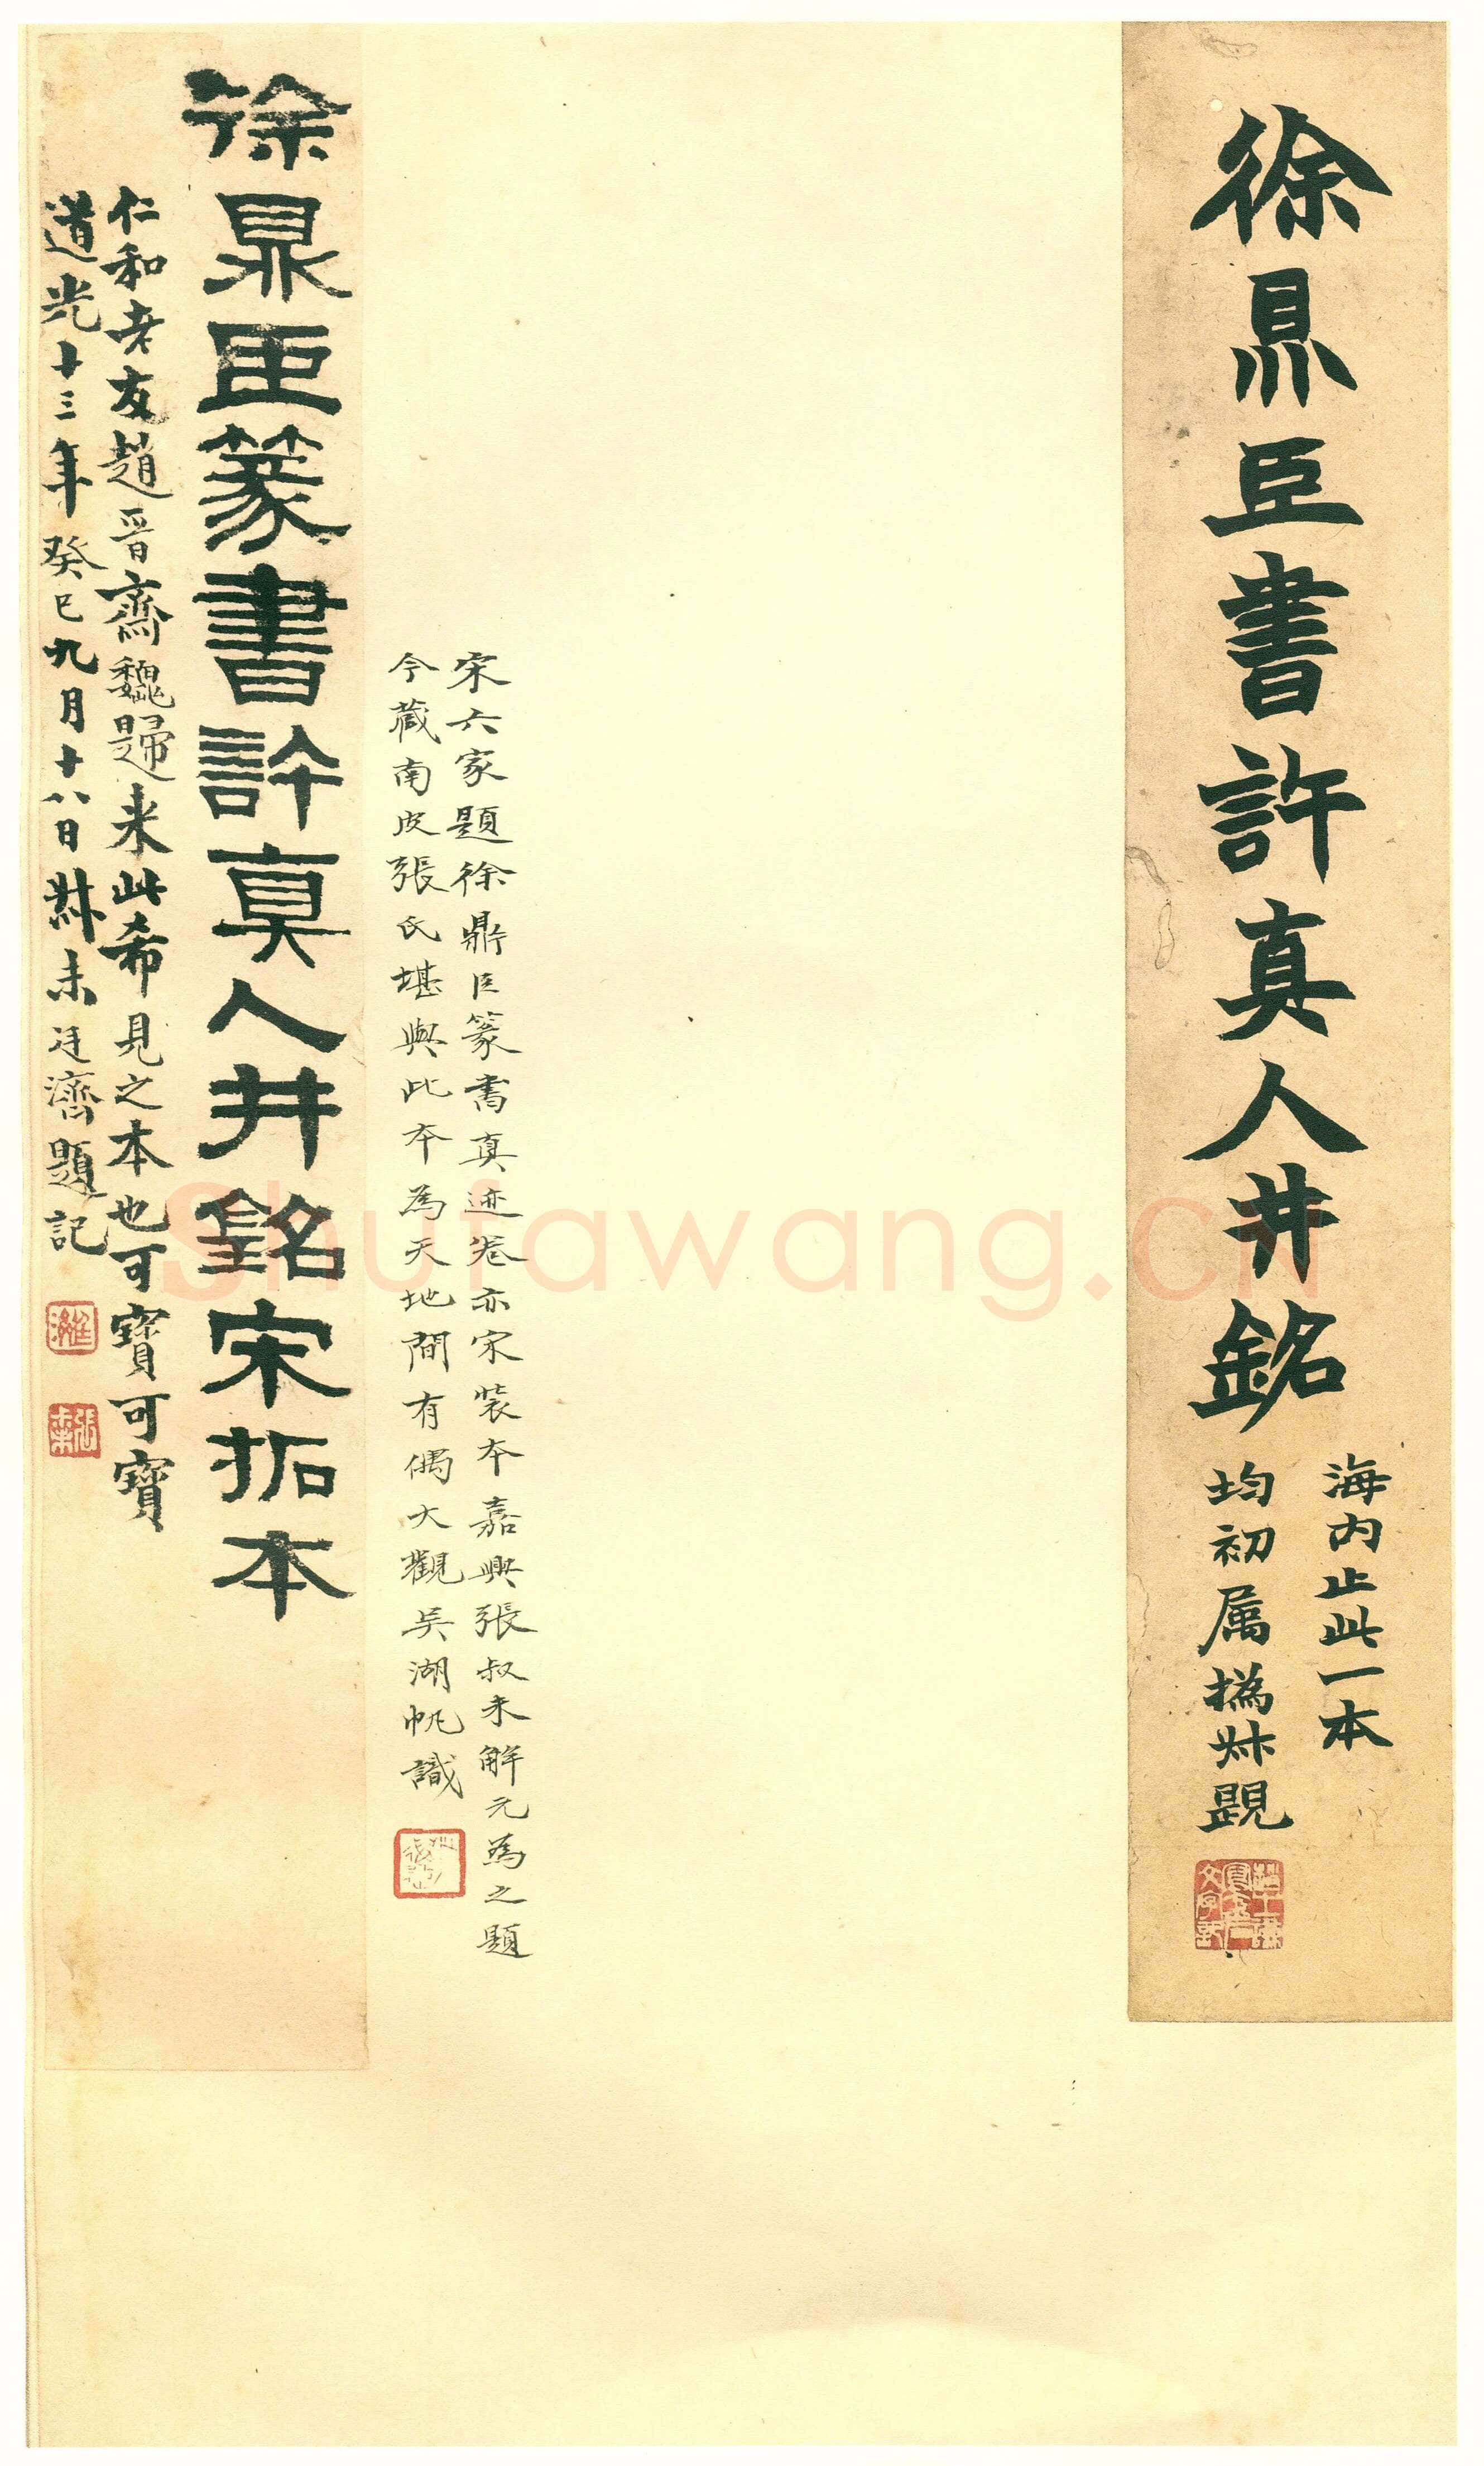 徐鼎臣書許真人井銘
海内止此一本
均初属撝叔題
宋六家題徐鼎臣篆書真迹卷亦宋裝本嘉興張叔未解元為之題
今藏南皮張氏堪與此本為天地間有偶大觀吳湖帆識
徐鼎臣篆書許真人井銘宋拓本
仁和老友趙晉齋魏歸来此希見之本也可寶可寶
道光十三年癸巳九月十八日叔未廷濟題記
廷濟
張叔未
Shufawang.CN